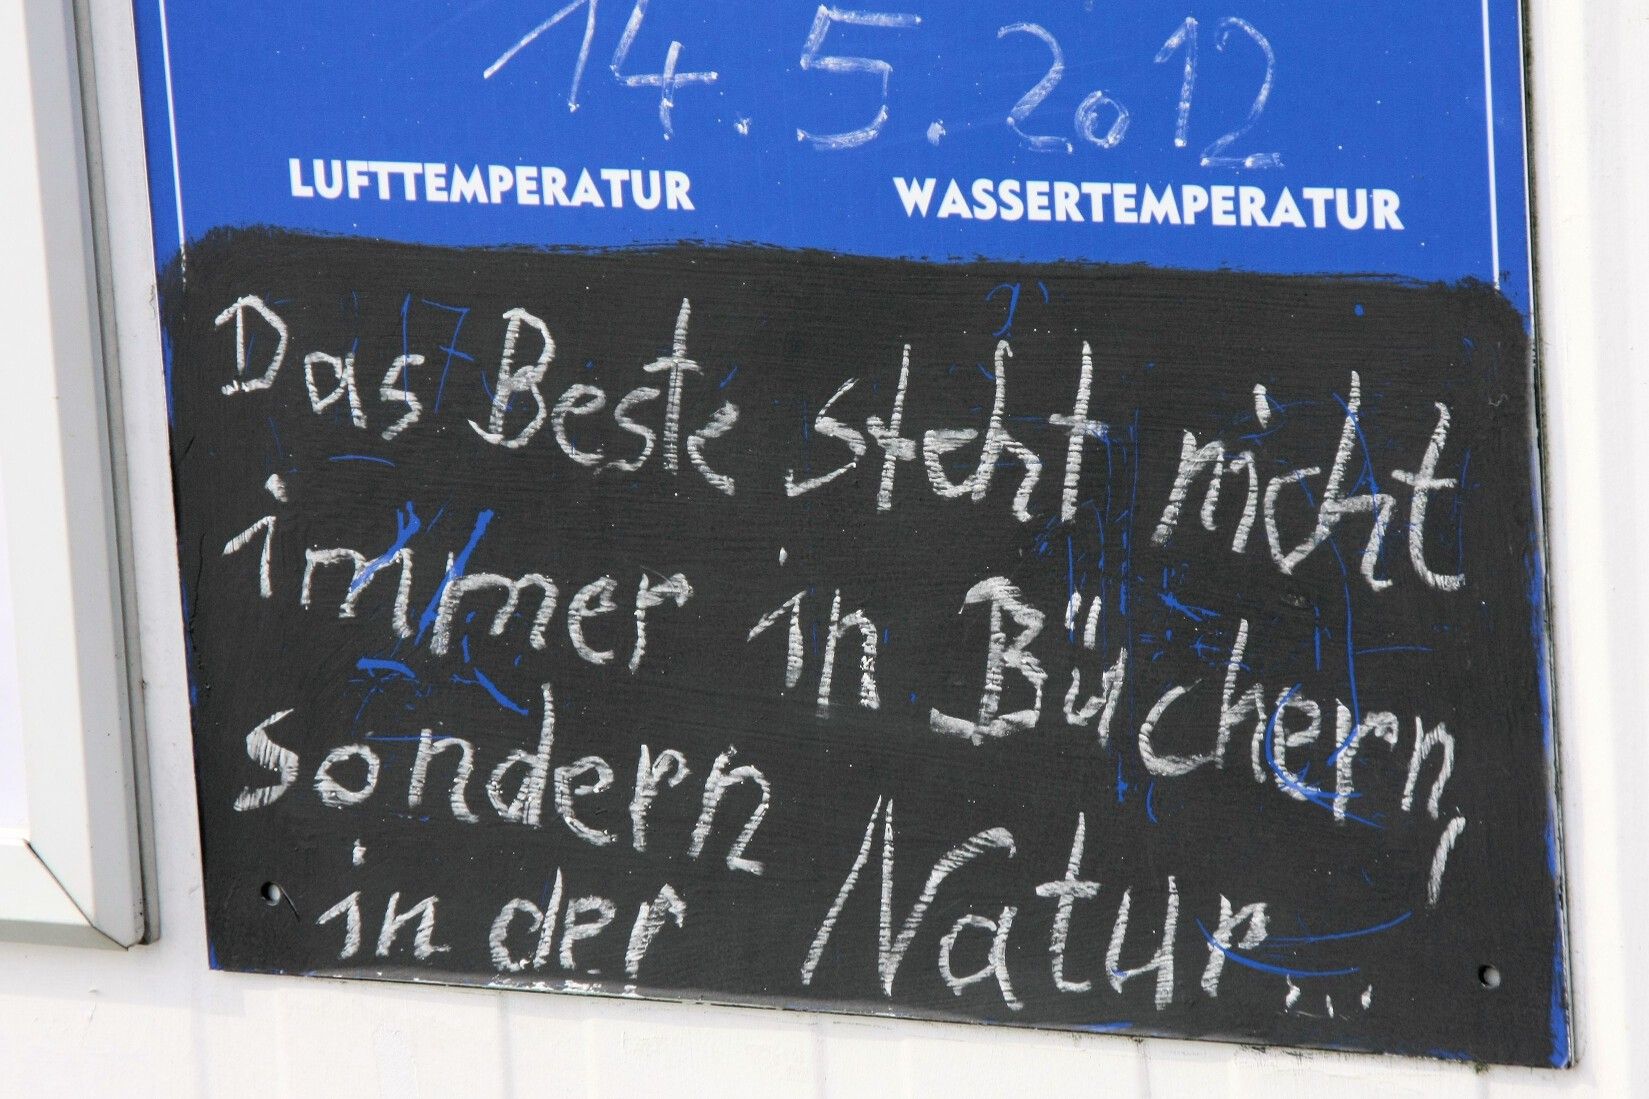 14.5.2012
LUFTTEMPERATUR WASSERTEMPERATUR
Das Beste steht nicht
immer in Büchern,
sondern
in der Natur...